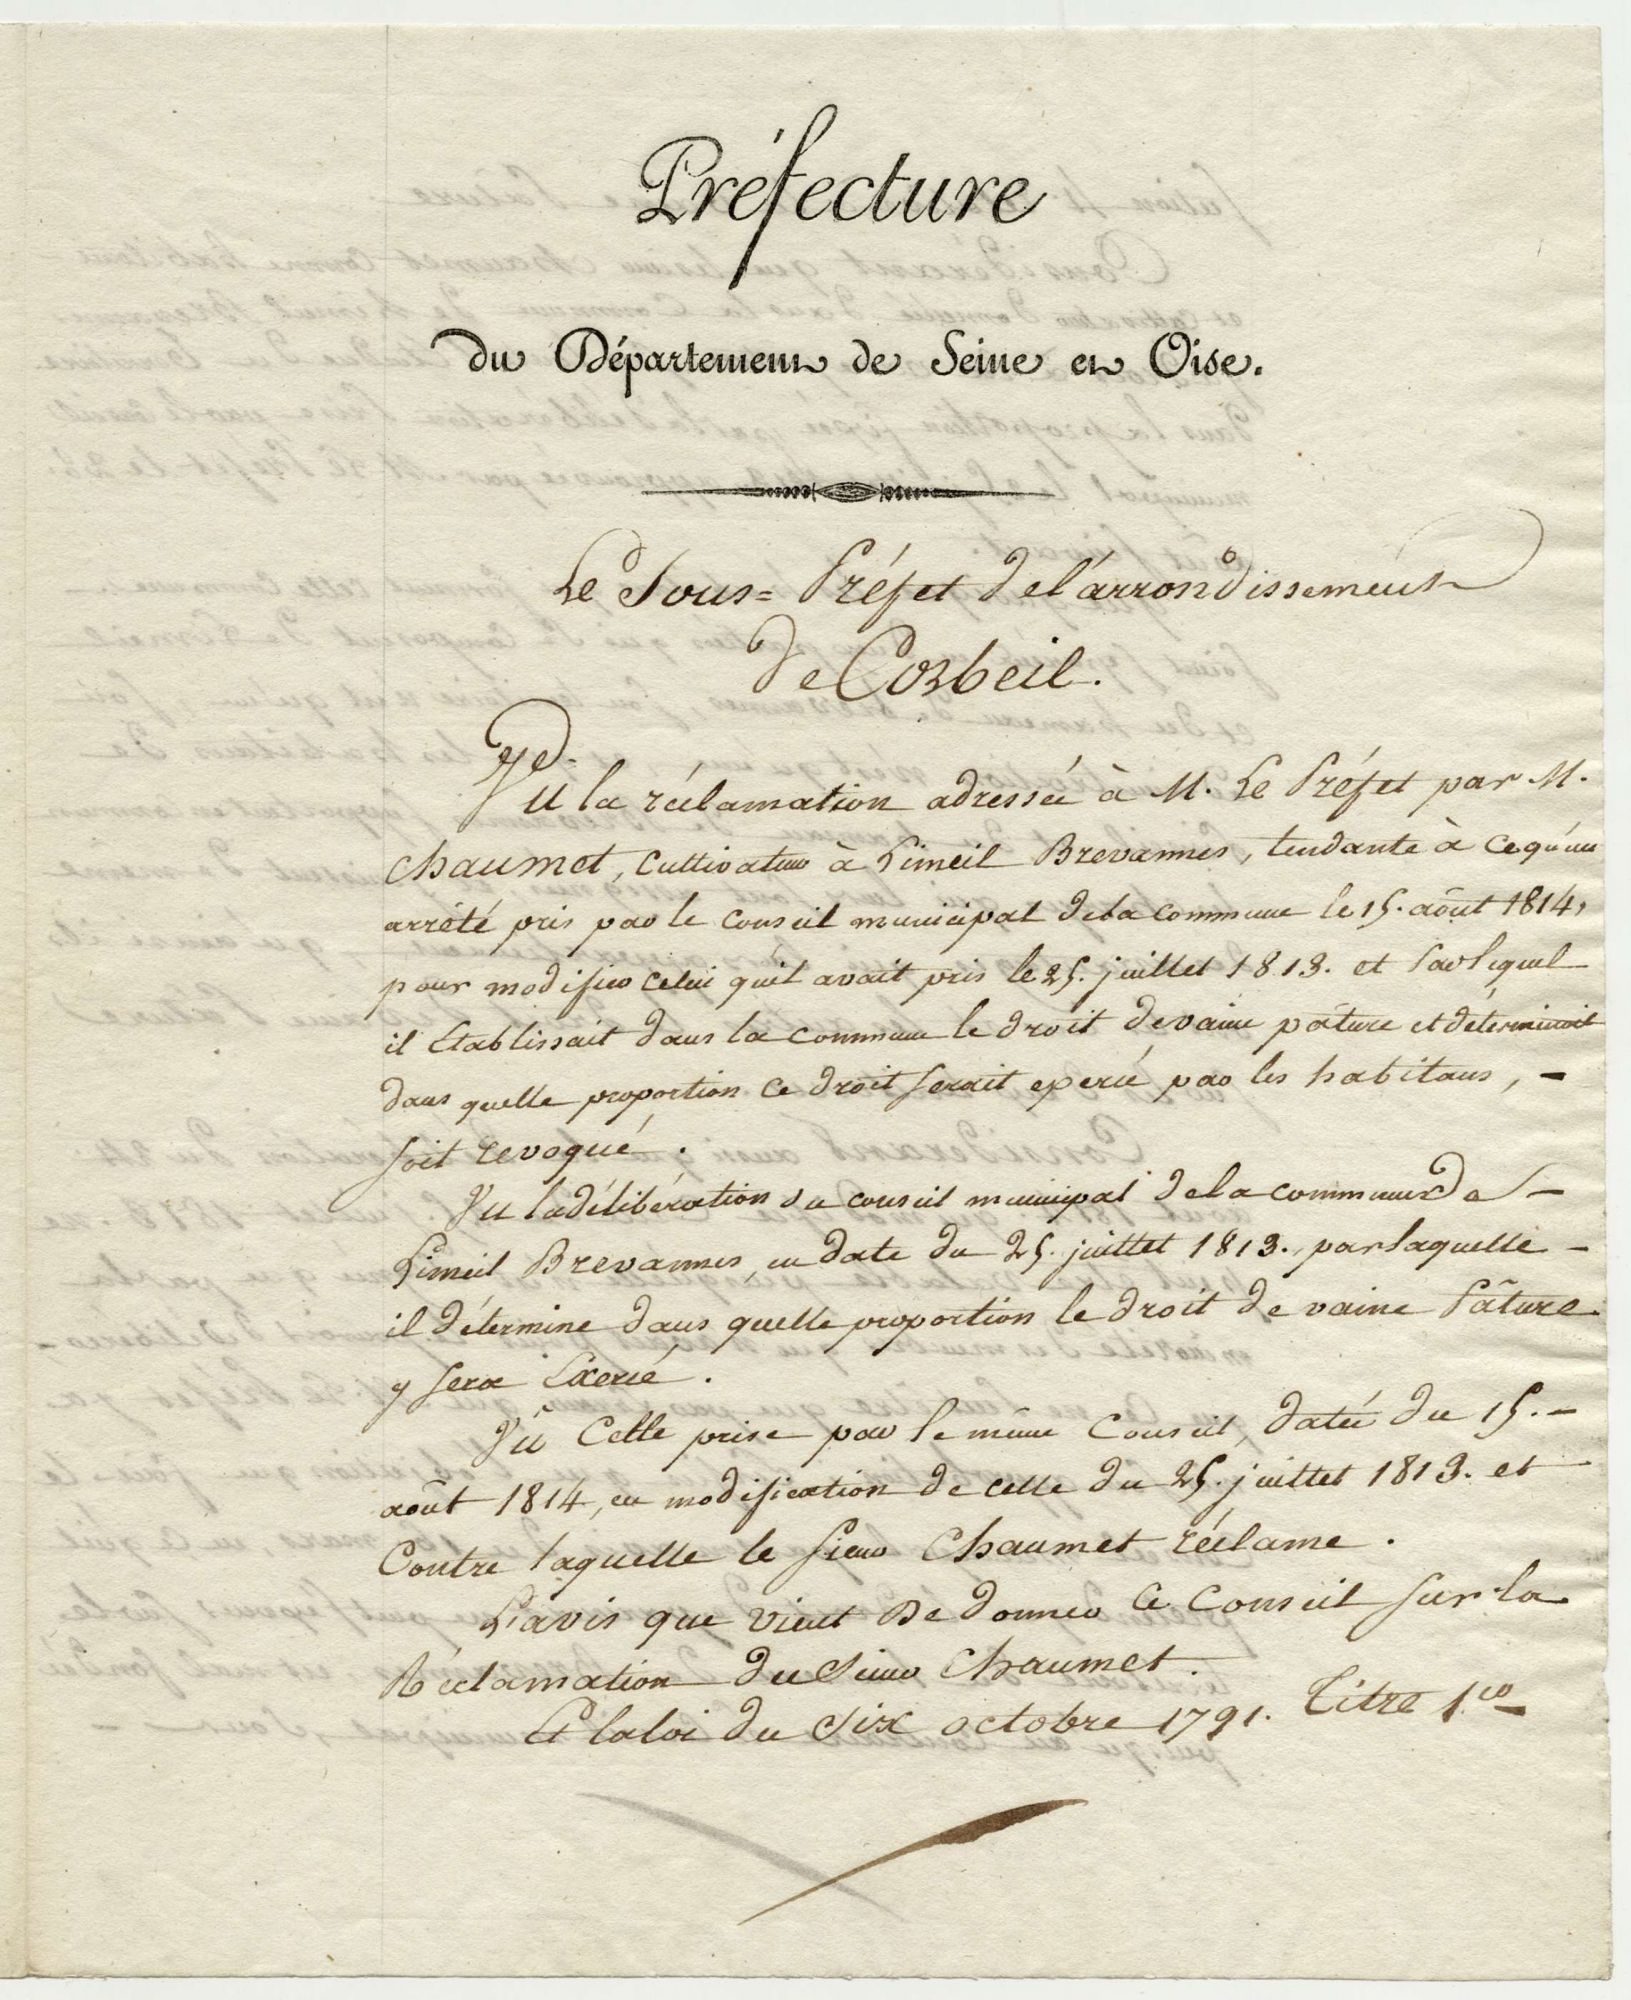 Préfecture
du Département de Seine et Oise.
Le Sous=Préfet de l'arrondissement
de Corbeil.
Vu la réclamation adressée à M. Le Préfet par M.
Chaumet, Cultivateur à Limeil Brevannes, tendante à ce qu'un
arrêté pris par le Conseil municipal de la commune le 15. août 1814,
pour modifier celui qu'il avait pris le 25. juillet 1813. et par lequel
il Etablissait dans la commune le droit de vaine pâture et déterminait
dans quelle proportion ce droit serait exercé par les habitans, -
soit revoqué.
Vu la délibération du conseil municipal de la commune de -
Limeil Brevannes, en date du 25. juillet 1813., par laquelle -
il détermine dans quelle proportion le droit de vaine Pâture
y sera Exercé.
Vû Celle prise par le même Conseil, datée du 15. -
août 1814, en modification de celle du 25. juillet 1813. et
Contre laquelle le Sieur Chaumet réclame.
L'avis que vient De donner Ce Conseil Sur la
Réclamation du Sieur Chaumet.
Et la loi du Six octobre 1791. Titre 1.er